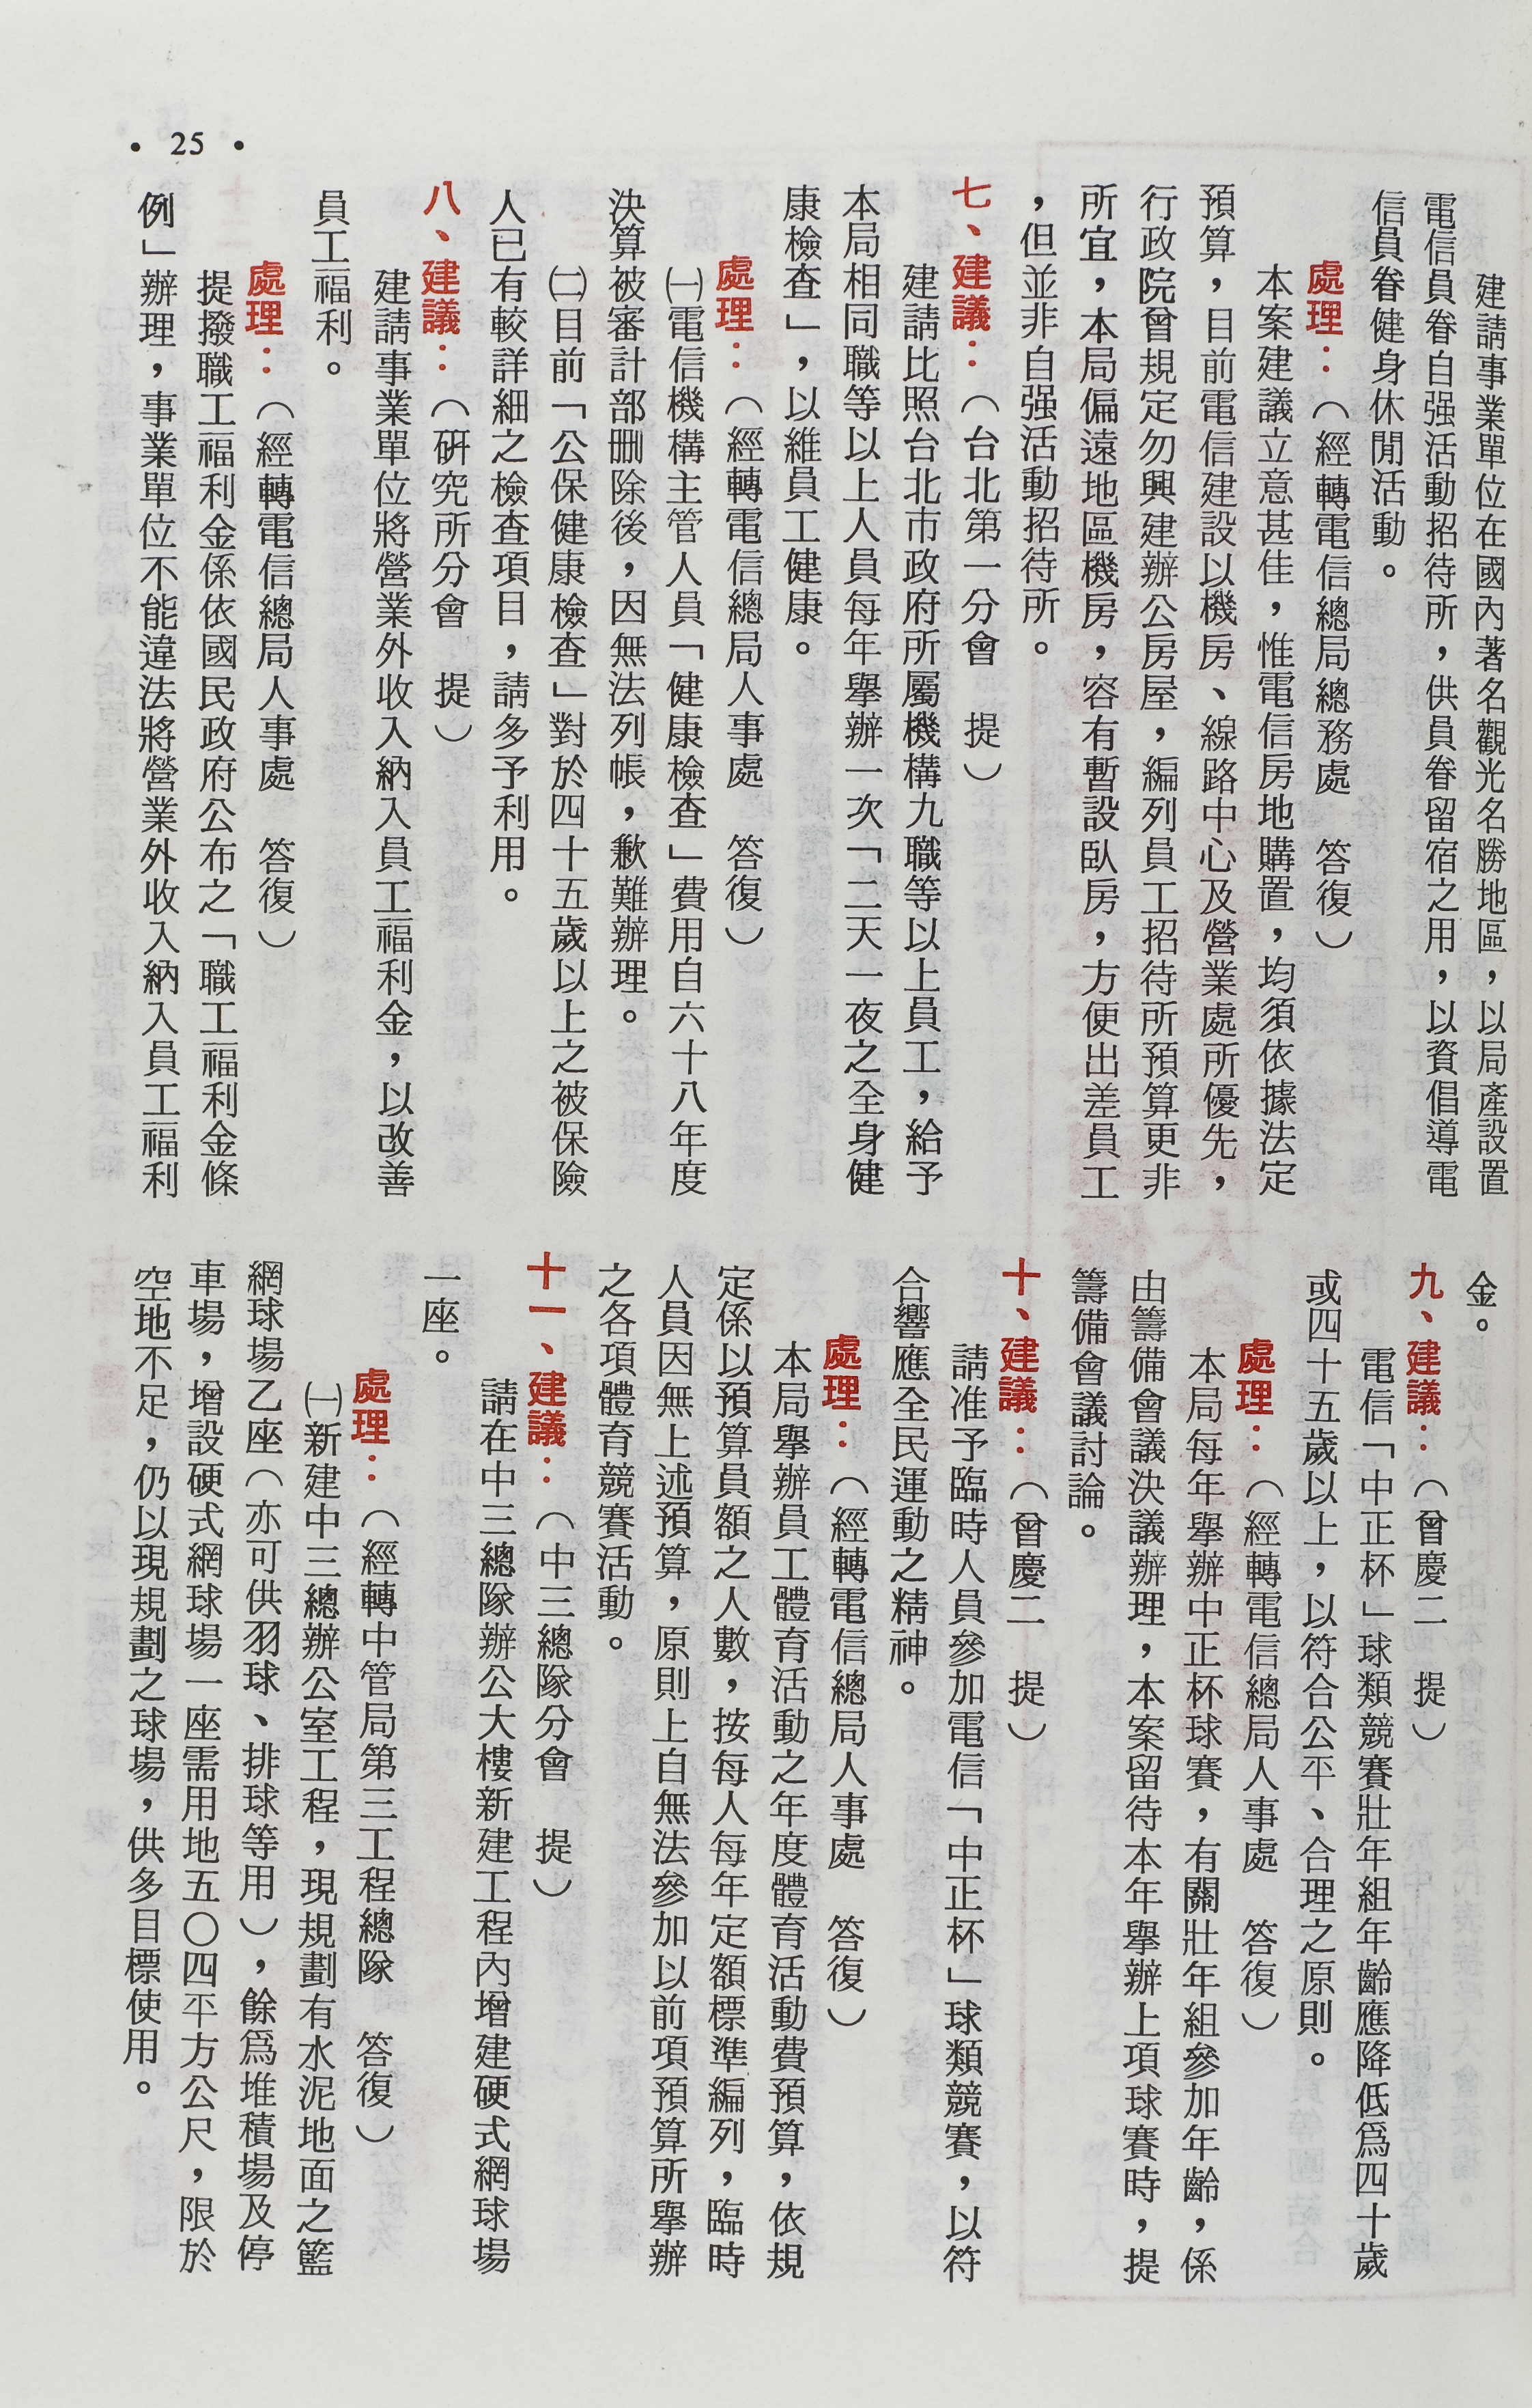 • 25 •
建請事業單位在國內著名觀光名勝地區，以局產設置
電信員眷自强活動招待所，供員眷留宿之用，以資倡導電
信員眷健身休閒活動。
處理：（經轉電信總局總務處　答復）
本案建議立意甚佳，惟電信房地購置，均須依據法定
預算，目前電信建設以機房、線路中心及營業處所優先，
行政院曾規定勿興建辦公房屋，編列員工招待所預算更非
所宜，本局偏遠地區機房，容有暫設臥房，方便出差員工
，但並非自强活動招待所。
七、建議：（台北第一分會　提）
建請比照台北市政府所屬機構九職等以上員工，給予
本局相同職等以上人員每年舉辦一次「二天一夜之全身健
康檢查」，以維員工健康。
處理：（經轉電信總局人事處　答復）
㈠電信機構主管人員「健康檢查」費用自六十八年度
決算被審計部刪除後，因無法列帳，歉難辦理。
㈡目前「公保健康檢查」對於四十五歲以上之被保險
人已有較詳細之檢查項目，請多予利用。
八、建議：（研究所分會　提）
建請事業單位將營業外收入納入員工福利金，以改善
員工福利。
處理：（經轉電信總局人事處　答復）
提撥職工福利金係依國民政府公布之「職工福利金條
例」辦理，事業單位不能違法將營業外收入納入員工福利
金。
九、建議：（曾慶二　提）
電信「中正杯」球類競賽壯年組年齡應降低爲四十歲
或四十五歲以上，以符合公平、合理之原則。
處理：（經轉電信總局人事處　答復）
本局每年舉辦中正杯球賽，有關壯年組參加年齡，係
由籌備會議決議辦理，本案留待本年舉辦上項球賽時，提
籌備會議討論。
十、建議：（曾慶二　提）
請准予臨時人員參加電信「中正杯」球類競賽，以符
合響應全民運動之精神。
處理：（經轉電信總局人事處　答復）
本局舉辦員工體育活動之年度體育活動費預算，依規
定係以預算員額之人數，按每人每年定額標準編列，臨時
人員因無上述預算，原則上自無法參加以前項預算所舉辦
之各項體育競賽活動。
十一、建議：（中三總隊分會　提）
請在中三總隊辦公大樓新建工程內增建硬式網球場
一座。
處理：（經轉中管局第三工程總隊　答復）
㈠新建中三總辦公室工程，現規劃有水泥地面之籃
網球場乙座（亦可供羽球、排球等用），餘爲堆積場及停
車場，增設硬式網球場一座需用地五〇四平方公尺，限於
空地不足，仍以現規劃之球場，供多目標使用。